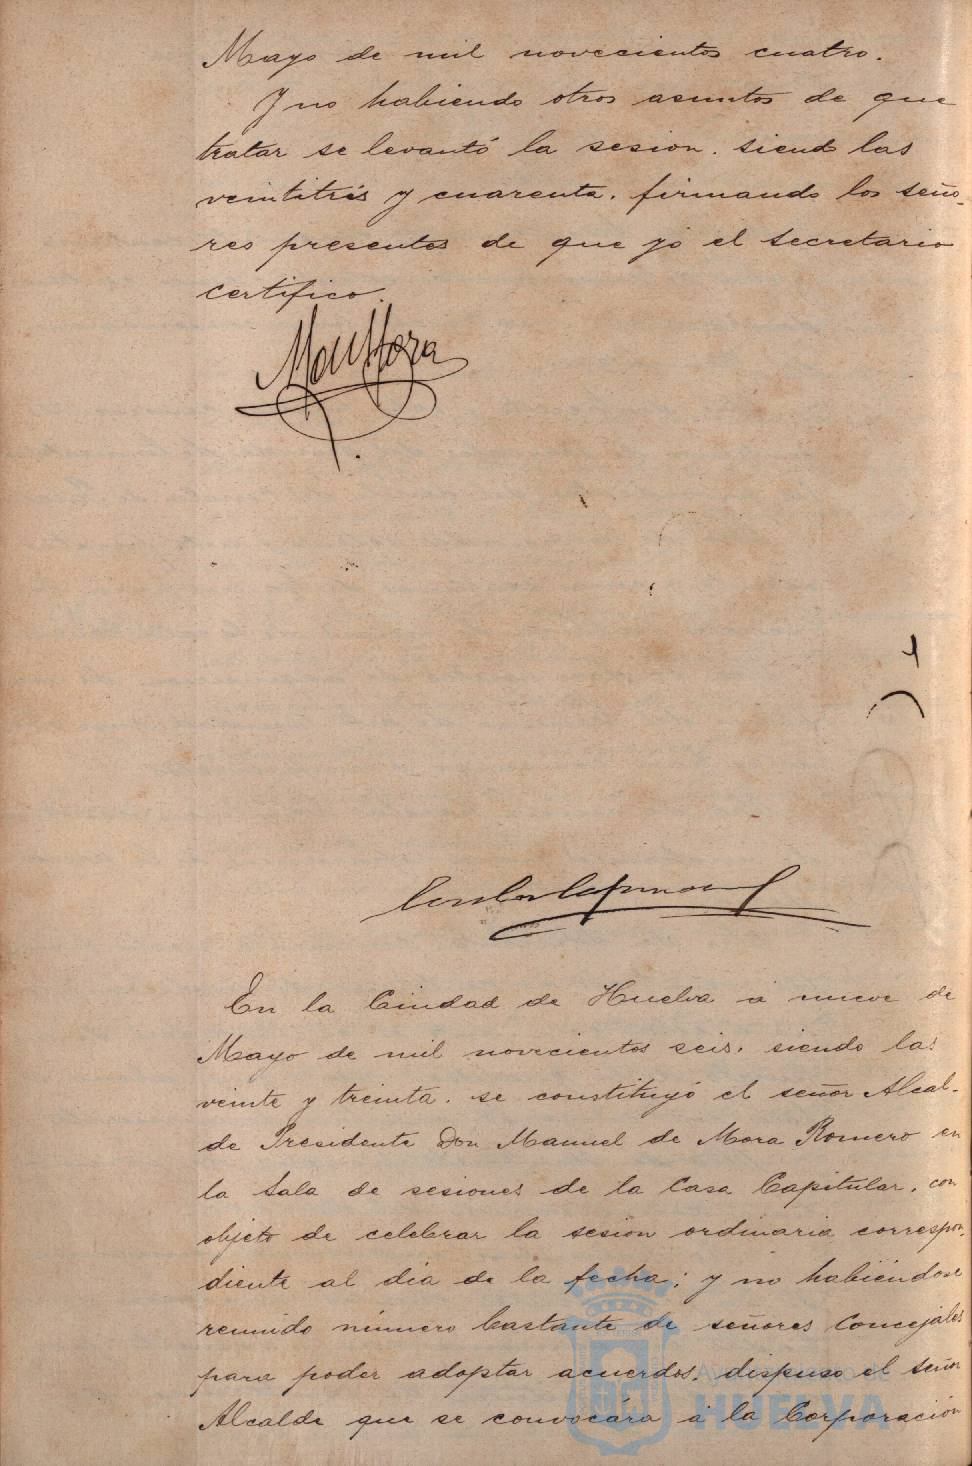 Mayo de mil novecientos cuatro.
Y no habiendo otros asuntos de que
tratar se levantó la sesion. siend las
veintitrés y cuarenta. firmando los seño-
res presentes de que yo el secretario
certifico.
En la Ciudad de Huelva á nueve de
Mayo de mil novecientos seis. siendo las
veinte y treinta. se constituyó el señor Alcal-
de Presidente Don Manuel de Mora Romero en
la Sala de sesiones de la Casa Capitular, con
objeto de celebrar la sesion ordinaria correspon-
diente al dia de la fecha; y no habiéndose
reunido número bastante de señores Concejales
para poder adoptar acuerdos. dispuso el señor
Ayuntamiento de
Alcalde que se convocára á la Corporacion
HUELVA